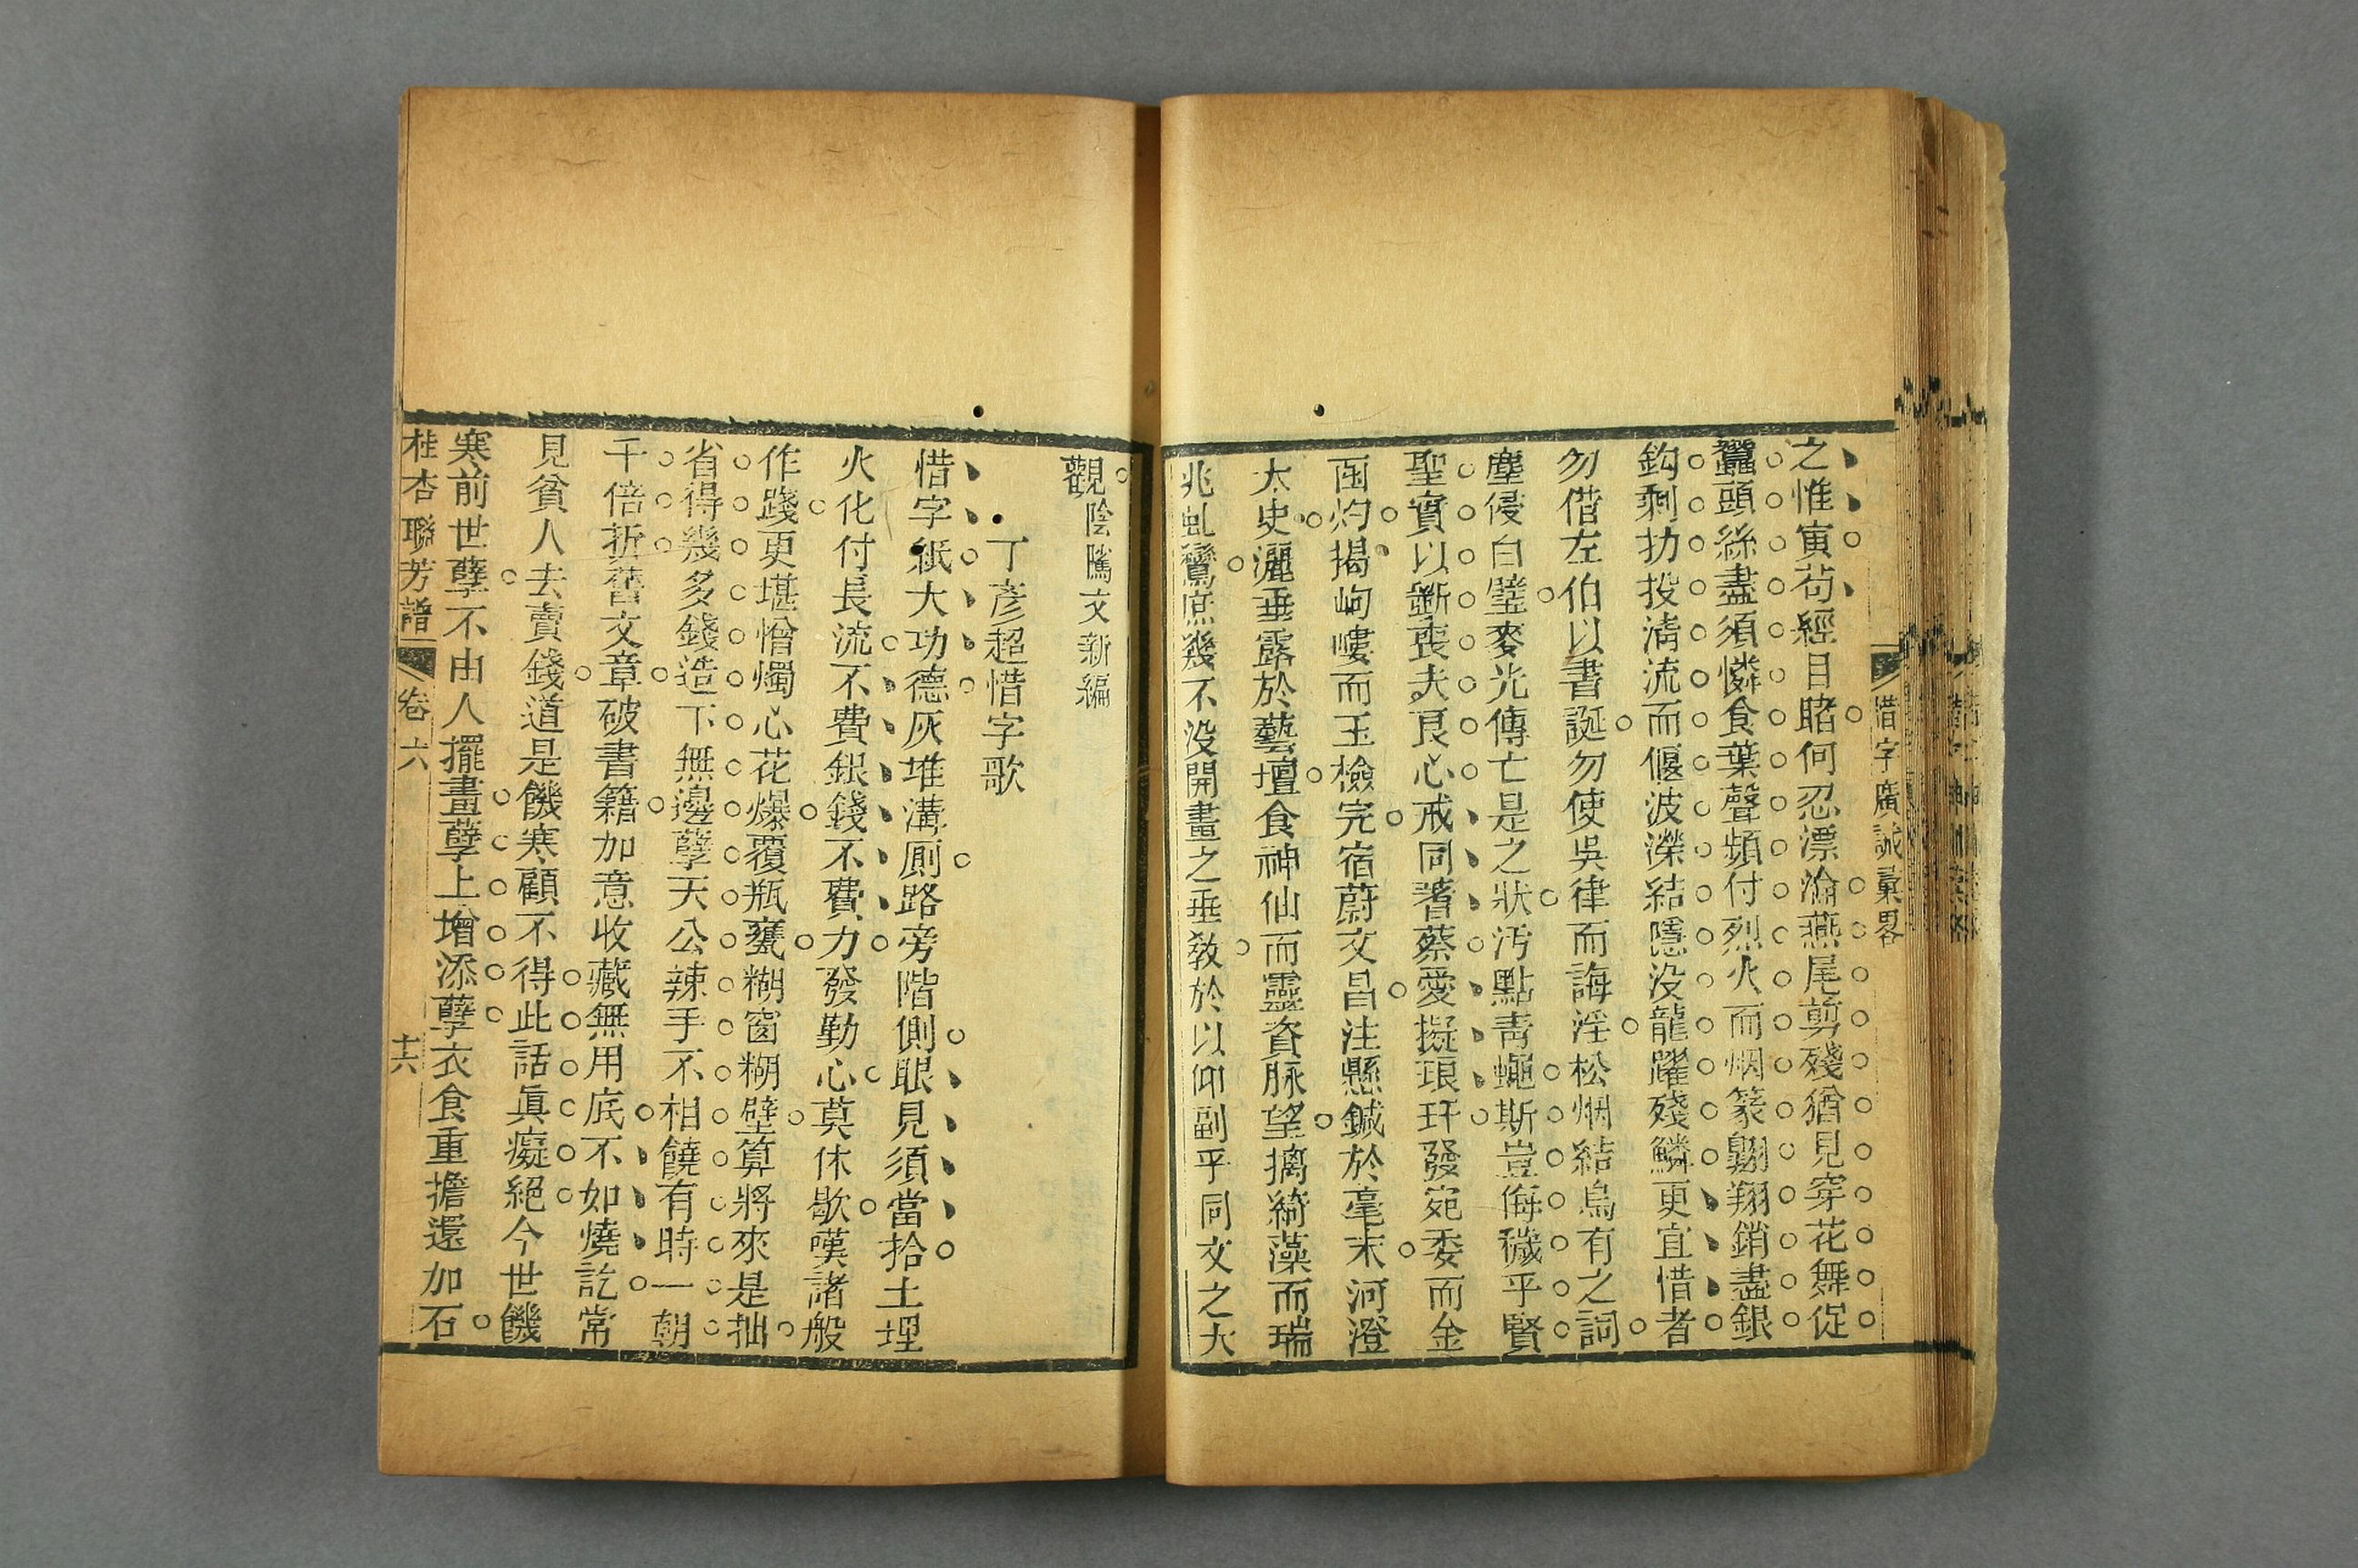 惜字廣誡彙畧
之惟寅苟經目睹何忍漂淪燕尾剪殘猶見穿花舞促
蠶頭絲盡須憐食葉聲頻付烈火而烟篆翺翔銷盡銀
鈎剩扐投淸流而偃波濼結隱没龍躍殘鱗更宜惜者
勿借左伯以書誕勿使吳律而誨淫松烟結烏有之詞
塵侵白璧麥光傳亡是之狀汚點靑蠅斯豈侮穢乎賢
聖實以斲喪夫良心戒同蓍蔡愛擬琅玕發宛委而金
函灼揭岣嶁而玉檢完宿蔚文昌注懸鍼於毫末河澄
太史灑垂露於藝壇食神仙而靈資脉望摛綺藻而瑞
兆虬鸞庶幾不没開畫之垂敎於以仰副乎同文之大
觀陰騭文新編
丁彥超惜字歌
惜字紙大功德灰堆溝厠路旁階側眼見須當拾土埋
火化付長流不費銀錢不費力發勤心莫休歇嘆諸般
作踐更堪憎燭心花爆覆瓶甕糊窗糊壁算將來是拙
省得幾多錢造下無邊孽天公辣手不相饒有時一朝
千倍折舊文章破書籍加意收藏無用底不如燒訖常
見貧人去賣錢道是饑寒顧不得此話眞癡絕今世饑
寒前世孽不由人擺畫孽上增添孽衣食重擔還加石
桂杏聯芳譜 卷六 十六